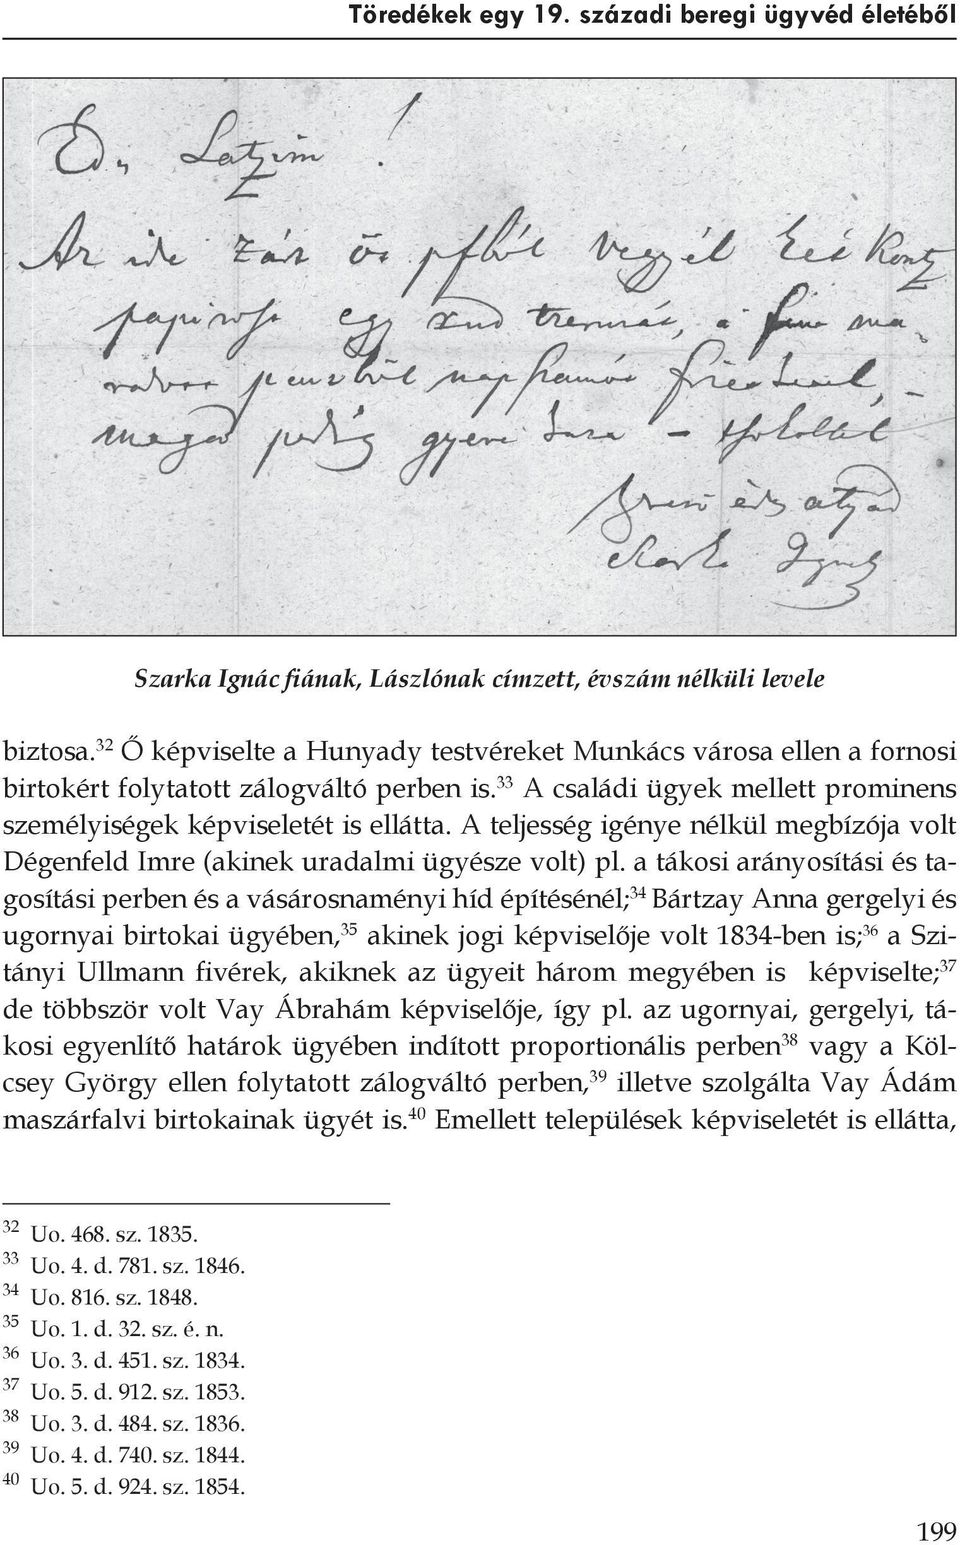 Töredékek egy 19. századi beregi ügyvéd életéből
Ed. Latzim!
Az ide zár ös pfból vegyél
papirost egy tzentruzát, a
pénzből
magad pedig gyere haza –
atyád
Szarka Ignátz
Szarka Ignác fiának, Lászlónak címzett, évszám nélküli levele
biztosa.32 Ő képviselte a Hunyady testvéreket Munkács városa ellen a fornosi
birtokért folytatott zálogváltó perben is.33 A családi ügyek mellett prominens
személyiségek képviseletét is ellátta. A teljesség igénye nélkül megbízója volt
Dégenfeld Imre (akinek uradalmi ügyésze volt) pl. a tákosi arányosítási és ta-
gosítási perben és a vásárosnaményi híd építésénél;34 Bártzay Anna gergelyi és
ugornyai birtokai ügyében,35 akinek jogi képviselője volt 1834-ben is;36 a Szi-
tányi Ullmann fivérek, akiknek az ügyeit három megyében is képviselte;37
de többször volt Vay Ábrahám képviselője, így pl. az ugornyai, gergelyi, tá-
kosi egyenlítő határok ügyében indított proportionális perben38 vagy a Köl-
csey György ellen folytatott zálogváltó perben,39 illetve szolgálta Vay Ádám
maszárfalvi birtokainak ügyét is.40 Emellett települések képviseletét is ellátta,
32 Uo. 468. sz. 1835.
33 Uo. 4. d. 781. sz. 1846.
34 Uo. 816. sz. 1848.
35 Uo. 1. d. 32. sz. é. n.
36 Uo. 3. d. 451. sz. 1834.
37 Uo. 5. d. 912. sz. 1853.
38 Uo. 3. d. 484. sz. 1836.
39 Uo. 4. d. 740. sz. 1844.
40 Uo. 5. d. 924. sz. 1854.
199